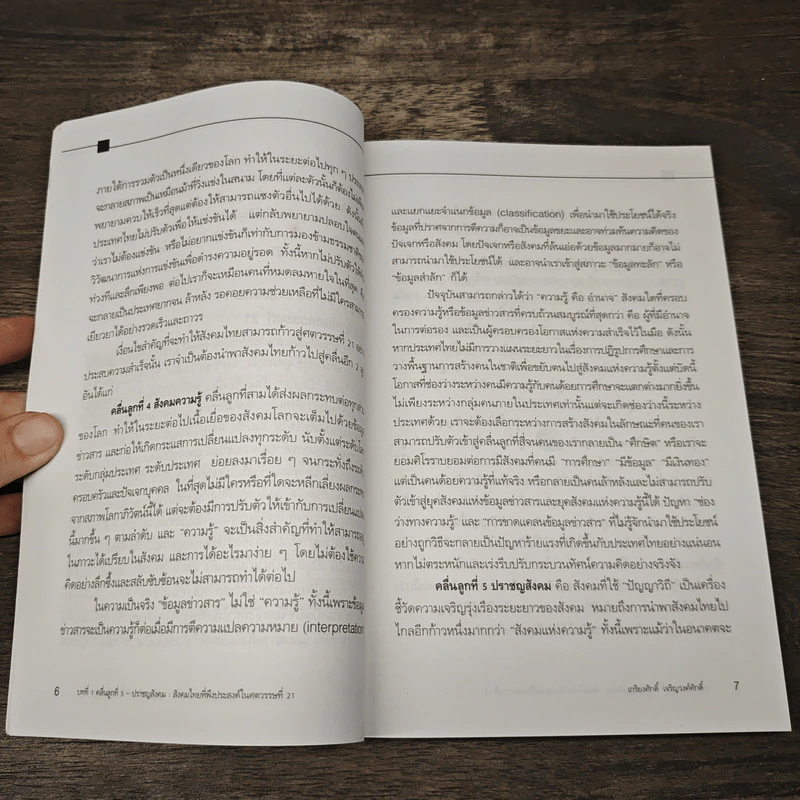 ภายใต้การรวมตัวเป็นหนึ่งเดียวของโลก ทำให้ในระยะต่อไปทุก ๆ
จะกลายสภาพเป็นเหมือนม้าที่วิ่งแข่งในสนาม โดยที่แต่ละตัวนั้นก็ต้อง
พยายามควบให้เร็วที่สุดแต่ต้องให้สามารถแซงตัวอื่นไปได้ด้วย
ประเทศไทยไม่ปรับตัวเพื่อให้แข่งขันได้ แต่กลับพยายามปลอบใจ
ว่าเราไม่ต้องแข่งขัน หรือไม่อยากแข่งขันก็เท่ากับการมองข้ามธรรมชาติ
วิวัฒนาการแห่งการแข่งขันเพื่อดำรงความอยู่รอด ทั้งนี้หากไม่ปรับตัวให้
ท่วงทีและลึกเพียงพอ ต่อไปเราก็จะเหมือนคนที่หมดลมหายใจในที่สุด
จะกลายเป็นประเทศยากจน ล้าหลัง รอคอยความช่วยเหลือที่ไม่มีใคร
เยียวยาได้อย่างรวดเร็วและถาวร
เงื่อนไขสำคัญที่จะทำให้สังคมไทยสามารถก้าวสู่ศตวรรษที่ 21
ประสบความสำเร็จนั้น เราจำเป็นต้องนำพาสังคมไทยก้าวไปสู่คลื่นอีก 2
อันได้แก่
คลื่นลูกที่ 4 สังคมความรู้ คลื่นลูกที่สามได้ส่งผลกระทบต่อทุก
ของโลก ทำให้ในระยะต่อไปเนื้อเยื่อของสังคมโลกจะเต็มไปด้วยข้อมูล
ข่าวสาร และก่อให้เกิดกระแสการเปลี่ยนแปลงทุกระดับ นับตั้งแต่ระดับโลก
ระดับกลุ่มประเทศ ระดับประเทศ ย่อยลงมาเรื่อย ๆ จนกระทั่งถึงระดับ
ครอบครัวและปัจเจกบุคคล ในที่สุดไม่มีใครหรือที่ใดจะหลีกเลี่ยงผลกระทบ
จากสภาพโลกาภิวัตน์นี้ได้ แต่จะต้องมีการปรับตัวให้เข้ากับการเปลี่ยนแปลง
นี้มากขึ้น ๆ ตามลำดับ และ "ความรู้" จะเป็นสิ่งสำคัญที่ทำให้สามารถอยู่
ในภาวะได้เปรียบในสังคม และการได้อะไรมาง่าย ๆ โดยไม่ต้องใช้ความ
คิดอย่างลึกซึ้งและสลับซับซ้อนจะไม่สามารถทำได้ต่อไป
ในความเป็นจริง "ข้อมูลข่าวสาร" ไม่ใช่ "ความรู้" ทั้งนี้เพราะข้อมูล
ข่าวสารจะเป็นความรู้ก็ต่อเมื่อมีการตีความแปลความหมาย (interpretation)
6 บทที่ 1 คลื่นลูกที่ 5 - ปราชญสังคม : สังคมไทยที่พึงประสงค์ในศตวรรษที่ 21
และแยกแยะจำแนกข้อมูล (classification) เพื่อนำมาใช้ประโยชน์ได้จริง
ข้อมูลที่ปราศจากการตีความก็อาจเป็นข้อมูลขยะและอาจท่วมทันความคิดของ
ปัจเจกหรือสังคม โดยปัจเจกหรือสังคมที่ล้นเอ่อด้วยข้อมูลมากมายก็อาจไม่
สามารถนำมาใช้ประโยชน์ได้ และอาจนำเราเข้าสู่สภาวะ "ข้อมูลทะลัก" หรือ
"ข้อมูลสำลัก" ก็ได้
ปัจจุบันสามารถกล่าวได้ว่า "ความรู้ คือ อำนาจ" สังคมใดที่ครอบ
ครองความรู้หรือข้อมูลข่าวสารที่ครบถ้วนสมบูรณ์ที่สุดกว่า คือ ผู้ที่มีอำนาจ
ในการต่อรอง และเป็นผู้ครอบครองโอกาสแห่งความสำเร็จไว้ในมือ ดังนั้น
หากประเทศไทยไม่มีการวางแผนระยะยาวในเรื่องการปฏิรูปการศึกษาและการ
วางพื้นฐานการสร้างคนในชาติเพื่อขยับตนไปสู่สังคมแห่งความรู้ตั้งแต่บัดนี้
โอกาสที่ช่องว่างระหว่างคนมีความรู้กับคนด้อยการศึกษาจะแตกต่างมากยิ่งขึ้น
ไม่เพียงระหว่างกลุ่มคนภายในประเทศเท่านั้นแต่จะเกิดช่องว่างนี้ระหว่าง
ประเทศด้วย เราจะต้องเลือกระหว่างการสร้างสังคมในลักษณะที่คนของเรา
สามารถปรับตัวเข้าสู่คลื่นลูกที่สี่จนคนของเรากลายเป็น "ศึกษิต" หรือเราจะ
ยอมศิโรราบยอมต่อการมีสังคมที่คนมี "การศึกษา" "มีข้อมูล" "มีเงินทอง"
แต่เป็นคนด้อยความรู้ที่แท้จริง หรือกลายเป็นคนล้าหลังและไม่สามารถปรับ
ตัวเข้าสู่ยุคสังคมแห่งข้อมูลข่าวสารและยุคสังคมแห่งความรู้นี้ได้ ปัญหา "ช่อง
ว่างทางความรู้" และ "การขาดแคลนข้อมูลข่าวสาร" ที่ไม่รู้จักนำมาใช้ประโยชน์
อย่างถูกวิธีจะกลายเป็นปัญหาร้ายแรงที่เกิดขึ้นกับประเทศไทยอย่างแน่นอน
หากไม่ตระหนักและเร่งรีบปรับกระบวนทัศน์ความคิดอย่างจริงจัง
คลื่นลูกที่ 5 ปราชญสังคม คือ สังคมที่ใช้ "ปัญญาวิถี" เป็นเครื่อง
ชี้วัดความเจริญรุ่งเรืองระยะยาวของสังคม หมายถึงการนำพาสังคมไทยไป
ไกลอีกก้าวหนึ่งมากกว่า "สังคมแห่งความรู้" ทั้งนี้เพราะแม้ว่าในอนาคตจะ
เกรียงศักดิ์ เจริญวงศ์ศักดิ์ 7